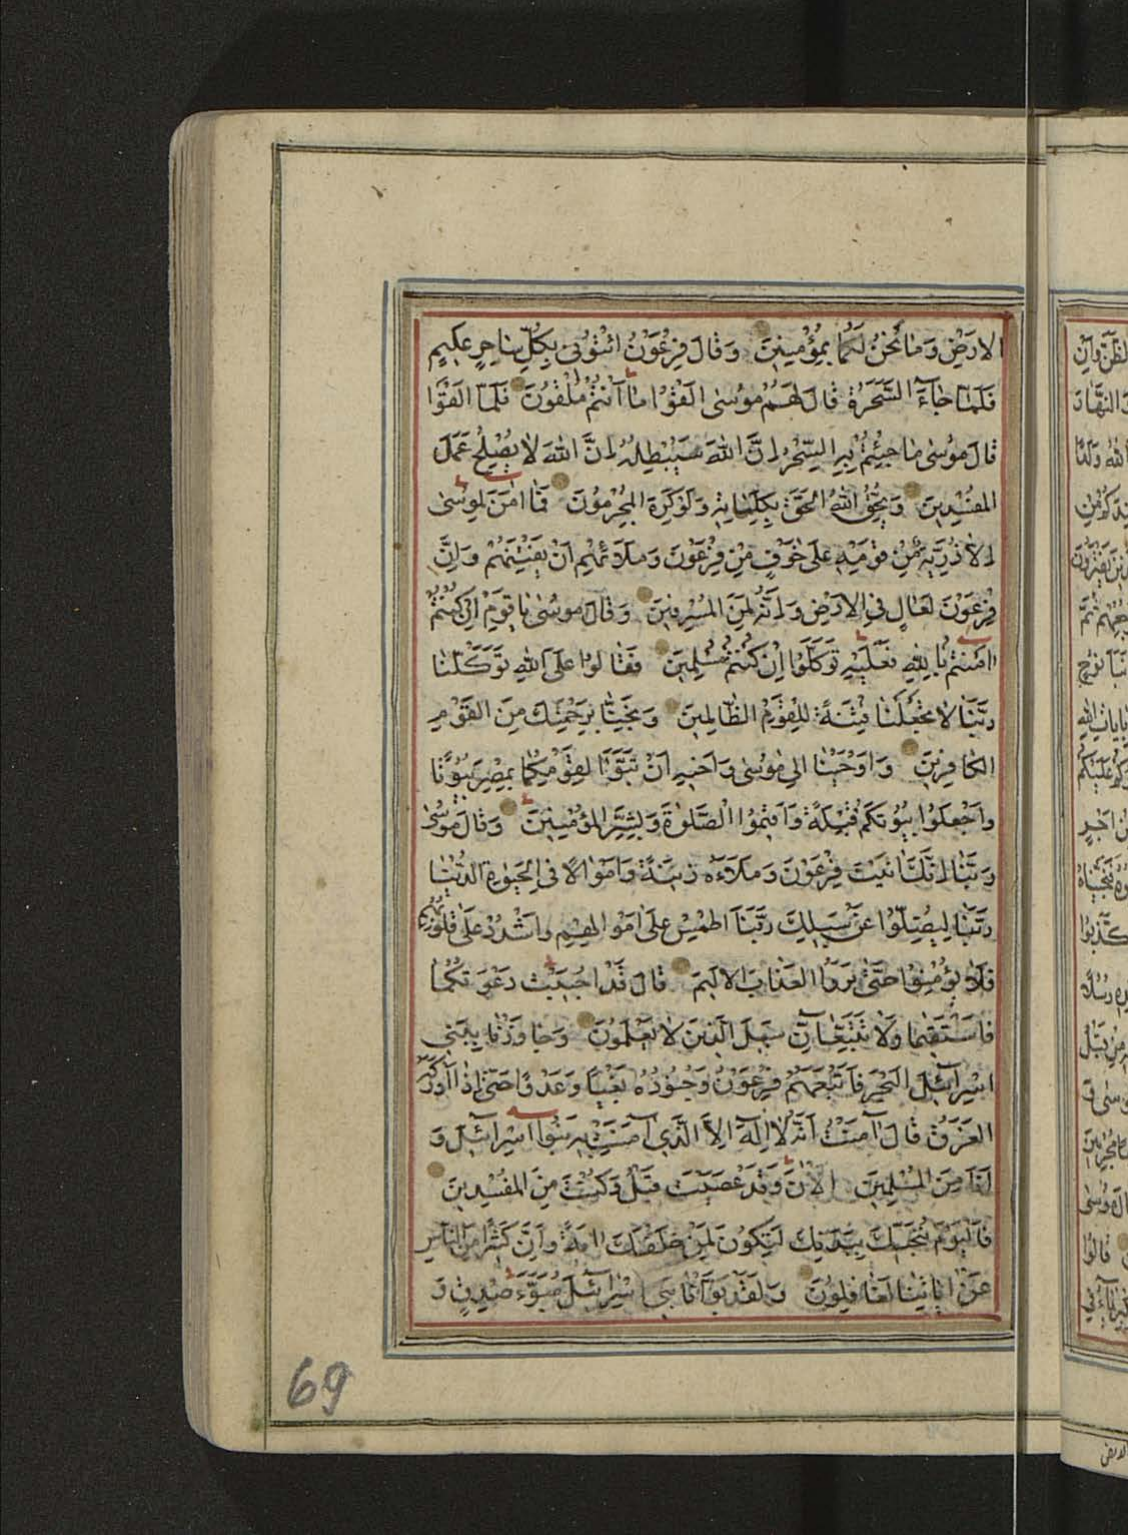 الارَضْ وَمَا نَحْنُ لَكُمَا بِمُؤْمِنِينَ وَقَالَ فِرْعَوْنُ ائْتُونِى بِكُلِّ سَاحِرٍ عَلِيمٍ
فَلَمَّا جَاءَ السَّحَرَةُ قَالَ لَهُمْ مُوسٰى اَلْقُوا مَا اَنْتُمْ مُلْقُونَ فَلَمَّا اَلْقَوْا
قَالَ مُوسٰى مَا جِئْتُمْ بِهِ السِّحْرُ اِنَّ اللّٰهَ سَيُبْطِلُهُ اِنَّ اللّٰهَ لَا يُصْلِحُ عَمَلَ
الْمُفْسِدِينَ وَيُحِقُّ اللّٰهُ الْحَقَّ بِكَلِمَاتِهِ وَلَوْ كَرِهَ الْمُجْرِمُونَ فَمَا اٰمَنَ لِمُوسٰى
اِلَّا ذُرِّيَّةٌ مِنْ قَوْمِهِ عَلٰى خَوْفٍ مِنْ فِرْعَوْنَ وَمَلَائِهِمْ اَنْ يَفْتِنَهُمْ وَاِنَّ
فِرْعَوْنَ لَعَالٍ فِى الْاَرْضِ وَاِنَّهُ لَمِنَ الْمُسْرِفِينَ وَقَالَ مُوسٰى يَا قَوْمِ اِنْ كُنْتُمْ
اٰمَنْتُمْ بِاللّٰهِ فَعَلَيْهِ تَوَكَّلُوا اِنْ كُنْتُمْ مُسْلِمِينَ فَقَالُوا عَلَى اللّٰهِ تَوَكَّلْنَا
رَبَّنَا لَا تَجْعَلْنَا فِتْنَةً لِلْقَوْمِ الظَّالِمِينَ وَنَجِّنَا بِرَحْمَتِكَ مِنَ الْقَوْمِ
الْكَافِرِينَ وَاَوْحَيْنَا اِلٰى مُوسٰى وَاَخِيهِ اَنْ تَبَوَّاٰ لِقَوْمِكُمَا بِمِصْرَ بُيُوتًا
وَاجْعَلُوا بُيُوتَكُمْ قِبْلَةً وَاَقِيمُوا الصَّلٰوةَ وَبَشِّرِ الْمُؤْمِنِينَ وَقَالَ مُوسٰى
رَبَّنَا اِنَّكَ اٰتَيْتَ فِرْعَوْنَ وَمَلَاَهُ زِينَةً وَاَمْوَالًا فِى الْحَيٰوةِ الدُّنْيَا
رَبَّنَا لِيُضِلُّوا عَنْ سَبِيلِكَ رَبَّنَا اطْمِسْ عَلٰى اَمْوَالِهِمْ وَاشْدُدْ عَلٰى قُلُوبِهِمْ
فَلَا يُؤْمِنُوا حَتّٰى يَرَوُا الْعَذَابَ الْاَلِيمَ قَالَ قَدْ اُجِيبَتْ دَعْوَتُكُمَا
فَاسْتَقِيمَا وَلَا تَتَّبِعَانِّ سَبِيلَ الَّذِينَ لَا يَعْلَمُونَ وَجَاوَزْنَا بِبَنِى
اِسْرَائِيلَ الْبَحْرَ فَاَتْبَعَهُمْ فِرْعَوْنُ وَجُنُودُهُ بَغْيًا وَعَدْوًا حَتّٰى اِذَا اَدْرَكَهُ
الْغَرَقُ قَالَ اٰمَنْتُ اَنَّهُ لَا اِلٰهَ اِلَّا الَّذِى اٰمَنَتْ بِهِ بَنُوا اِسْرَائِيلَ وَ
اَنَا مِنَ الْمُسْلِمِينَ اٰلْاٰنَ وَقَدْ عَصَيْتَ قَبْلُ وَكُنْتَ مِنَ الْمُفْسِدِينَ
فَالْيَوْمَ نُنَجِّيكَ بِبَدَنِكَ لِتَكُونَ لِمَنْ خَلْفَكَ اٰيَةً وَاِنَّ كَثِيرًا مِنَ النَّاسِ
عَنْ اٰيَاتِنَا لَغَافِلُونَ وَلَقَدْ بَوَّاْنَا بَنِى اِسْرَائِيلَ مُبَوَّءَ صِدْقٍ وَ
69